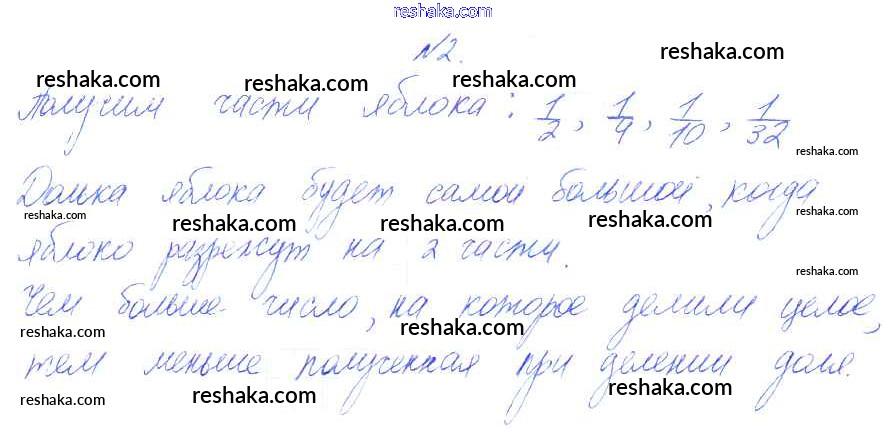 reshaka.com
№2.
reshaka.com
reshaka.com reshaka.com reshaka.com
Получим части яблока: 1/2, 1/4, 1/10, 1/32
reshaka.com
Долька яблока будет самой большой, когда
reshaka.com reshaka.com reshaka.com reshaka.com reshaka.com
яблоко разрежут на 2 части.
reshaka.com
Чем больше число, на которое делили целое,
reshaka.com reshaka.com
тем меньше полученная при делении доля.
reshaka.com reshaka.com reshaka.com